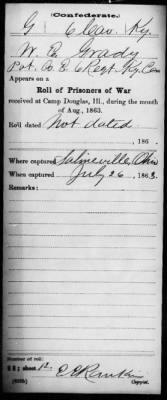 (Confederate.)
G 6 Cav Ky.
W. E. Grady
Pvt. Co. E 6 Regt. Ky. Cav
Appears on a
Roll of Prisoners of War
received at Camp Douglas, Ill., during the month
of Aug., 1863.
Roll dated Not dated.
, 186 .
Where captured Salineville, Ohio
When captured July 26, 1863.
Remarks:
Number of roll:
sheet
Copyist.